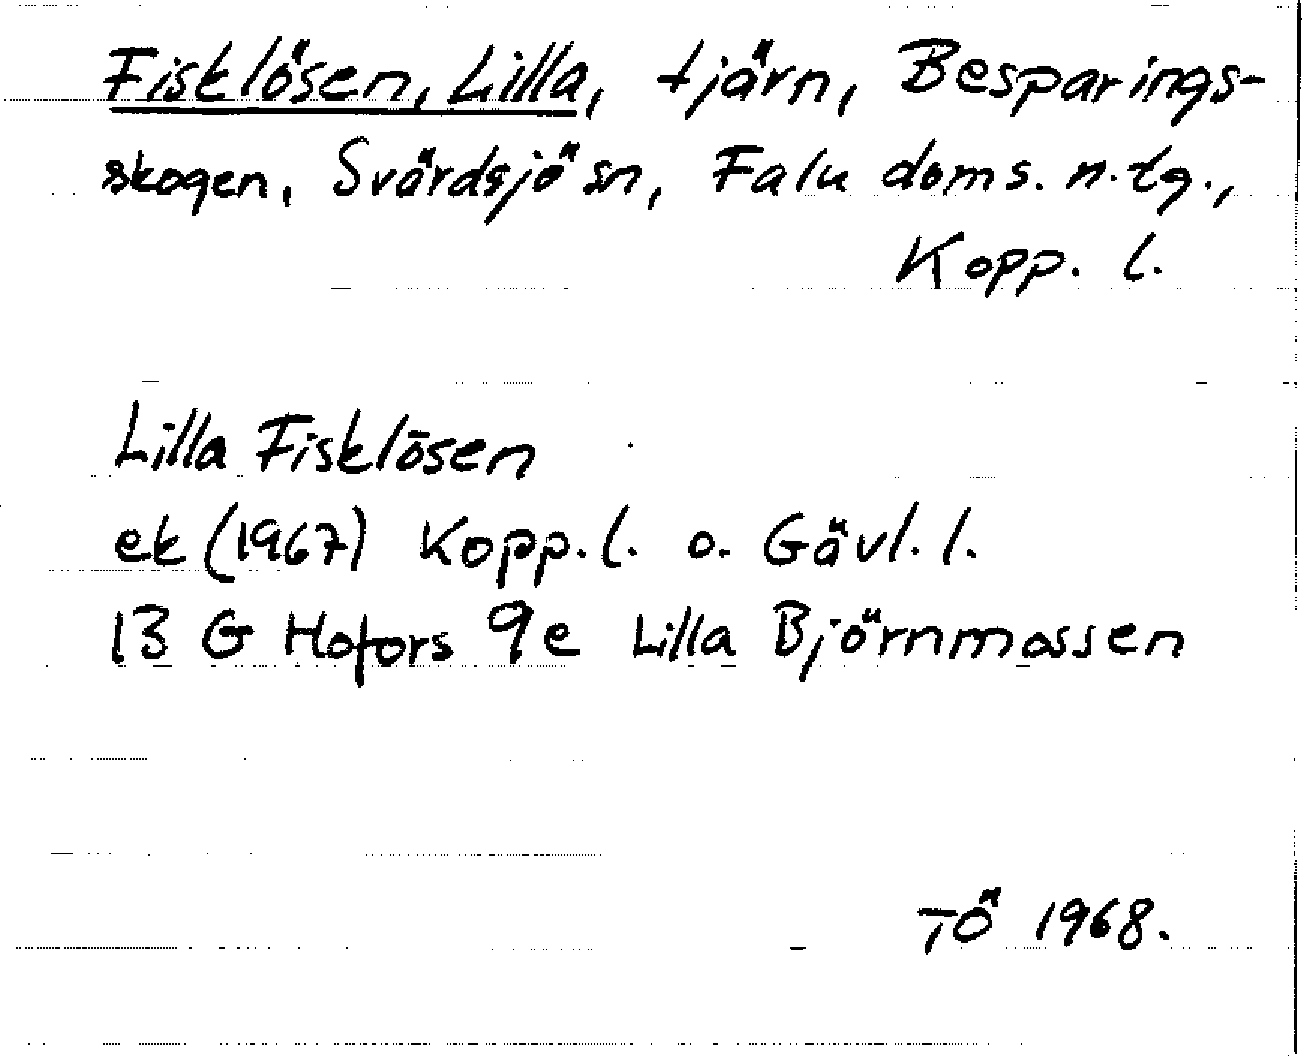 Fisklösen, Lilla, tjärn, Besparings-
skogen, Svärdsjö sn, Falu doms. n. tg.,
Kopp. l.
Lilla Fisklösen
ek (1967) Kopp. l. o. Gävl. l.
13 G Hofors 9e Lilla Björnmossen
TÖ 1968.